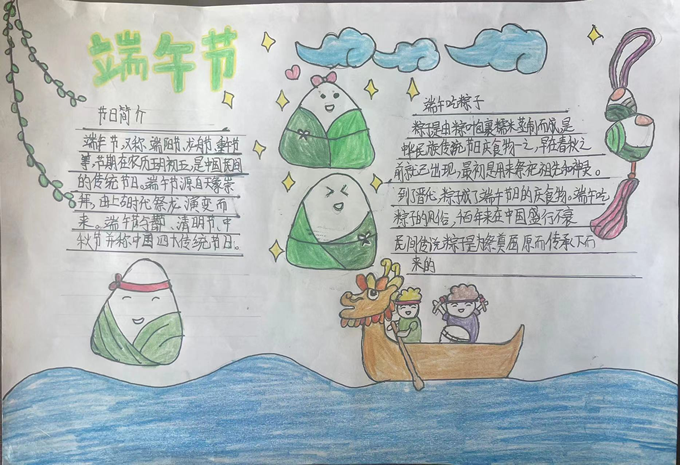 端午节
节日简介
端午节,又称端阳节、龙舟节、重午节
等,节期在农历五月初五,是中国民间
的传统节日。端午节源自天象崇
拜,由上古时代祭龙演变而
来。端午节与春节、清明节、中
秋节并称中国四大传统节日。
端午吃粽子
粽子是由粽叶包裹糯米蒸制而成,是
中华民族传统节日庆食物之一,早在春秋之
前就已出现,最初是用来祭祀祖先和神灵。
到了晋代,粽子成了端午节日的庆食物。端午吃
粽子的风俗,千百年来在中国盛行不衰
民间传说粽子是为祭奠屈原而传承下
来的